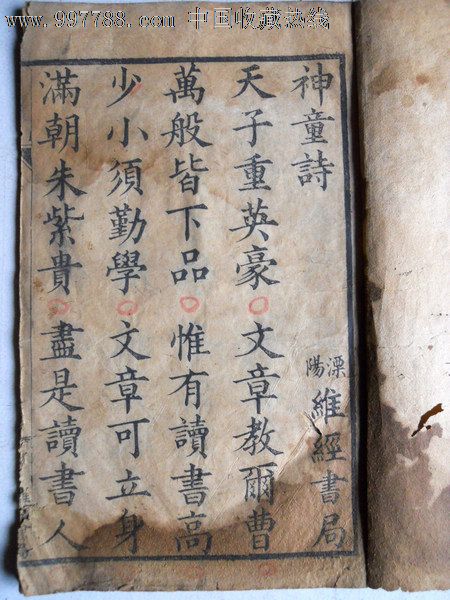 www.997788.com 中国收藏热线
神童詩
溧陽維經書局
天子重英豪○文章教爾曹
萬般皆下品○惟有讀書高
少小須勤學○文章可立身
滿朝朱紫貴○盡是讀書人